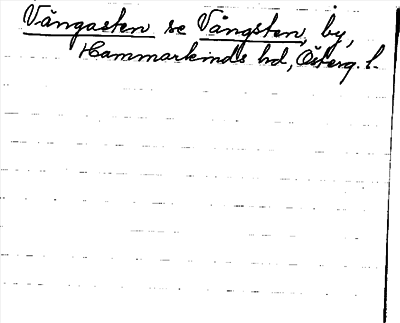 Vångasten se Vångsten, by,
Hammarkinds hd, Österg. l.